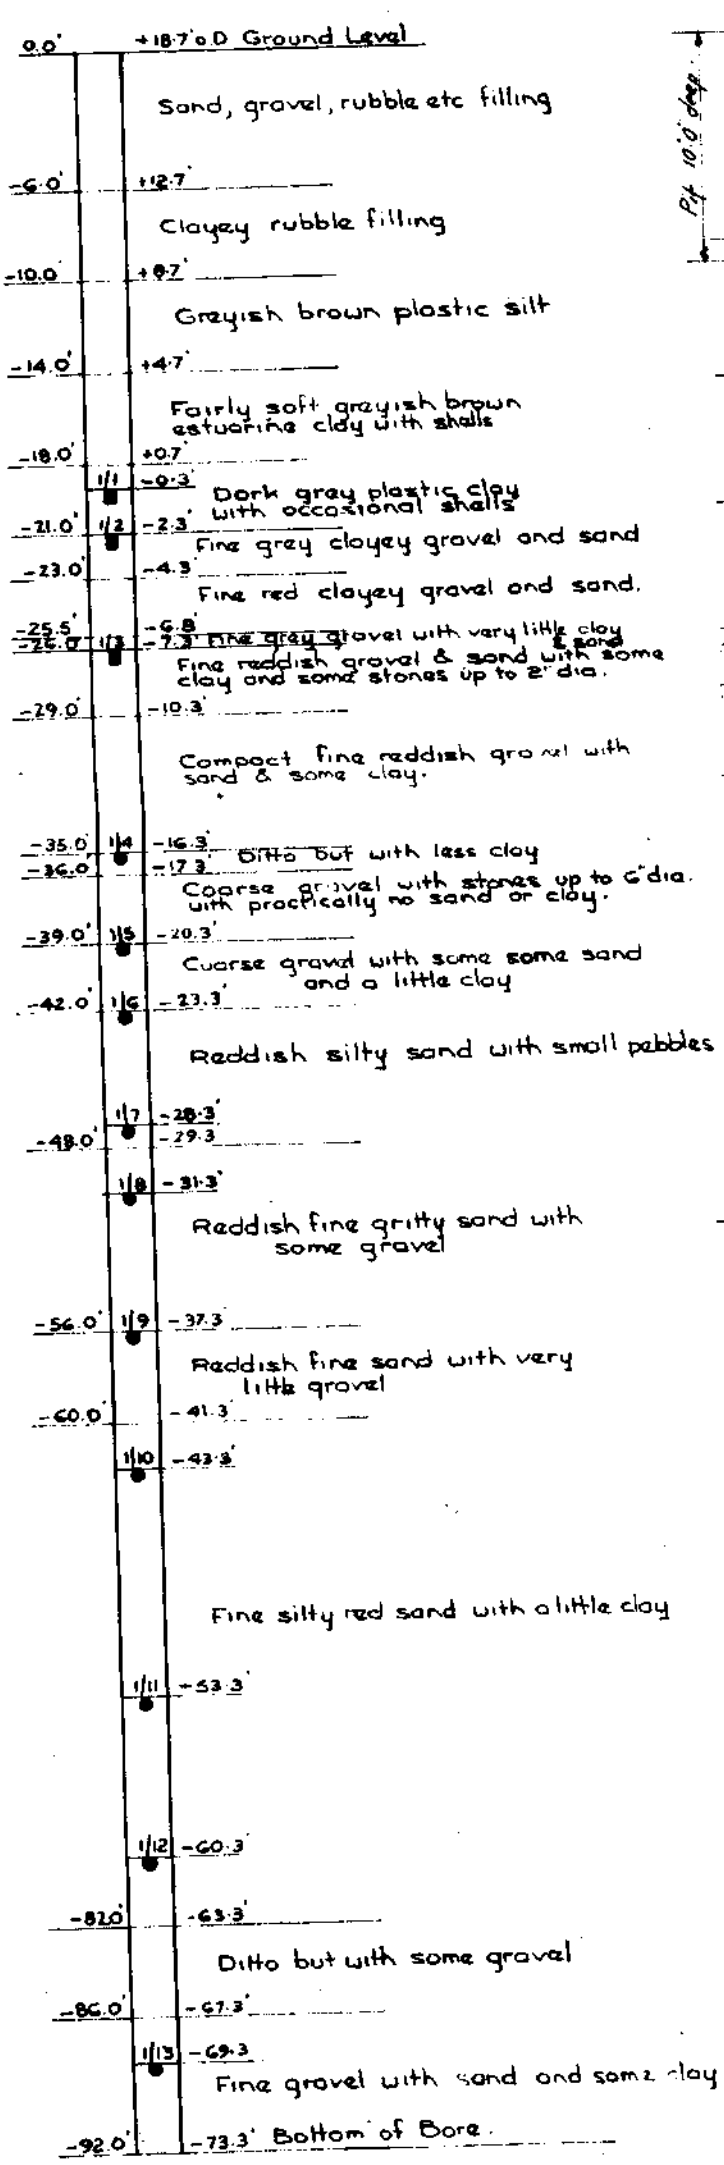 0.0' +18.7' O.D Ground Level
Sand, gravel, rubble etc filling
Pit 10'0" deep
-6.0' +12.7'
Clayey rubble filling
-10.0' +8.7'
Greyish brown plastic silt
-14.0' +4.7'
Fairly soft greyish brown
estuarine clay with shells
-18.0' +0.7'
1/1 -0.3'
Dark grey plastic clay
with occasional shells
-21.0' 1/2 -2.3'
Fine grey clayey gravel and sand
-23.0' -4.3'
Fine red clayey gravel and sand.
-25.5' -6.8'
Fine grey gravel with very little clay
& sand
-26.0' 1/3 -7.3'
Fine reddish gravel & sand with some
clay and some stones up to 2" dia.
-29.0' -10.3'
Compact fine reddish gravel with
sand & some clay.
-35.0' 1/4 -16.3'
Ditto but with less clay
-36.0' -17.3'
Coarse gravel with stones up to 6" dia.
with practically no sand or clay.
-39.0' 1/5 -20.3'
Coarse gravel with some some sand
and a little clay
-42.0' 1/6 -23.3'
Reddish silty sand with small pebbles
1/7 -28.3'
-48.0' -29.3
1/8 -31.3'
Reddish fine gritty sand with
some gravel
-56.0' 1/9 -37.3
Reddish fine sand with very
little gravel
-60.0' -41.3'
1/10 -43.3'
Fine silty red sand with a little clay
1/11 -53.3'
1/12 -60.3'
-82.0' -63.3'
Ditto but with some gravel
-86.0' -67.3'
1/13 -69.3
Fine gravel with sand and some clay
-92.0' -73.3' Bottom of Bore.